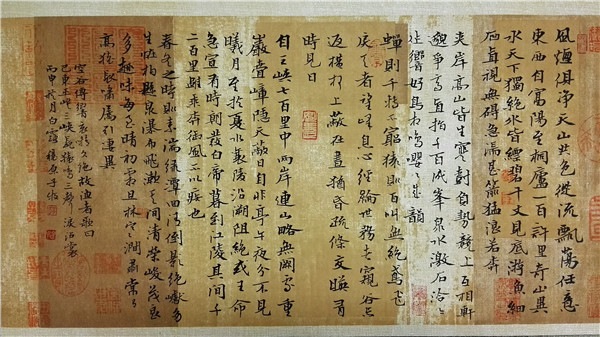 風煙俱淨天山共色從流飄蕩任意
東西自富陽至桐廬一百許里奇山異
水天下獨絕水皆縹碧千丈見底游魚細
石直視無礙急湍甚箭猛浪若奔
夾岸高山皆生寒樹負勢競上互相軒
邈爭高直指千百成峯泉水激石泠泠
作響好鳥相鳴嚶嚶成韻
蟬則千轉不窮猿則百叫無絕鳶飛
戾天者望峰息心經綸世務者窺谷忘
返橫柯上蔽在晝猶昏疏條交映有
時見日
自三峽七百里中兩岸連山略無闕處重
巖疊嶂隱天蔽日自非亭午夜分不見
曦月至於夏水襄陵沿溯阻絕或王命
急宣有時朝發白帝暮到江陵其間千
二百里雖乘奔御風不以疾也
春冬之時則素湍綠潭回清倒影絕巘多
生怪柏懸泉瀑布飛漱其間清榮峻茂良
多趣味每至晴初霜旦林寒澗肅常
高猿長嘯屬引凄異
空谷傳響哀轉久絕故漁者歌曰
巴東三峽巫峽長猿鳴三聲淚沾裳
丙申秋月白露